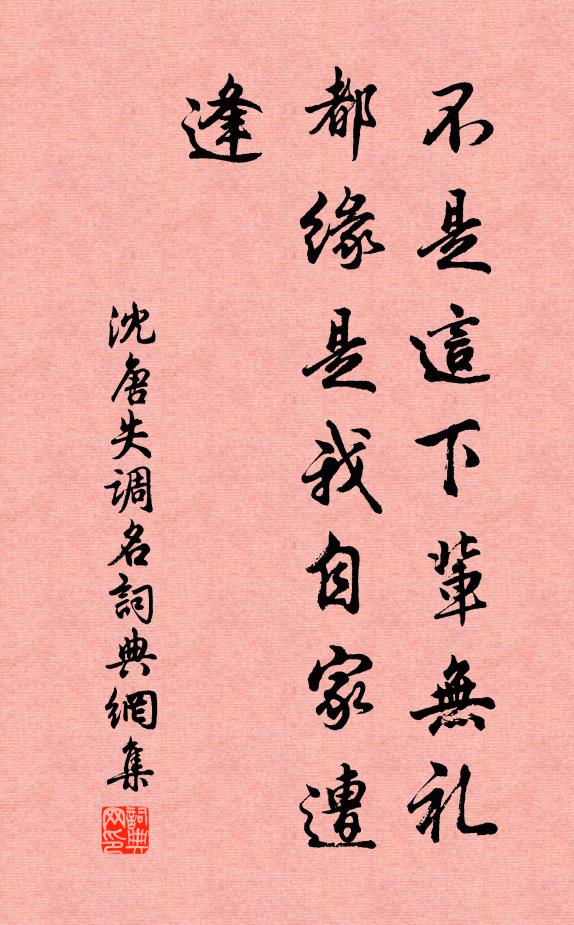 不是這下輩無礼
都緣是我自家遭
逢
沈唐失調名詞典網集
詞典网印